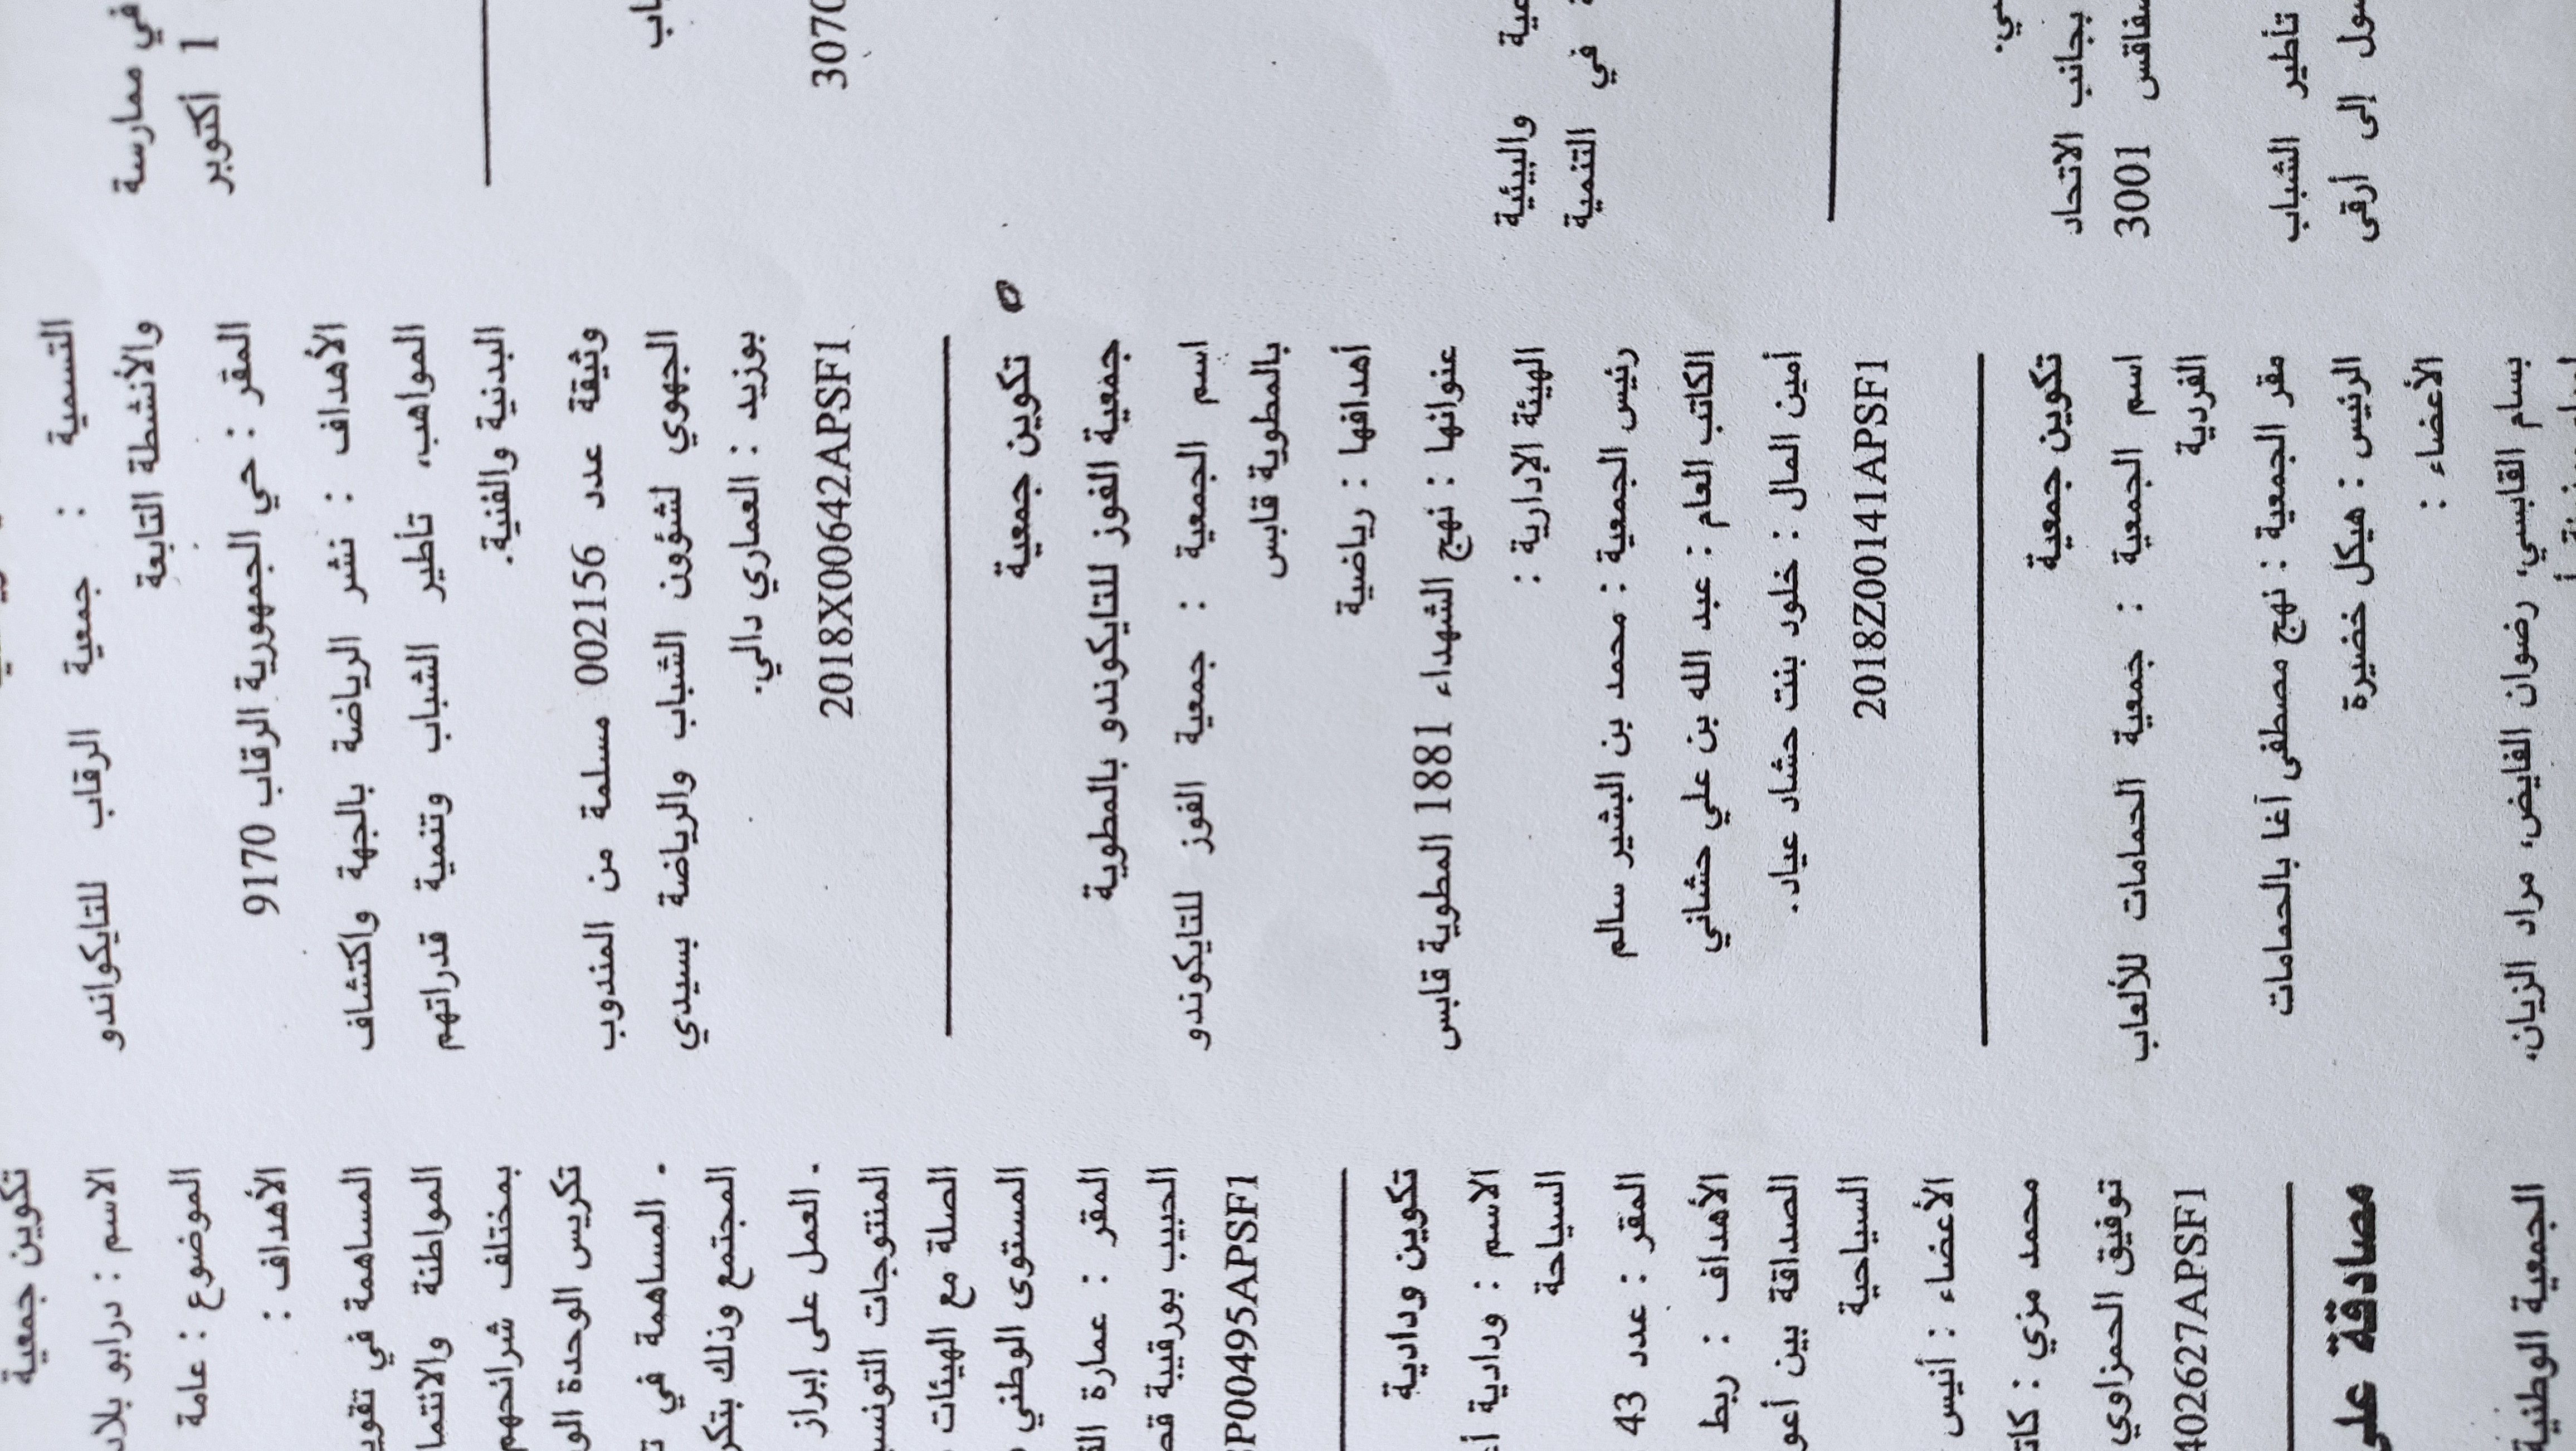 في ممارسة
1 أكتوبر
اب
3070
والبيئية
التنمية في
بجانب الاتحاد
3001
تأطير الشباب
إلى أرقى
التسمية : جمعية الرقاب للتايكواندو
والأنشطة التابعة
المقر : حي الجمهورية الرقاب 9170
الأهداف : نشر الرياضة بالجهة واكتشاف
المواهب، تأطير الشباب وتنمية قدراتهم
البدنية والفنية.
وثيقة عدد 002156 مسلمة من المندوب
الجهوي لشؤون الشباب والرياضة بسيدي
بوزيد : العماري دالي.
2018X00642APSF1
تكوين جمعية
جمعية الفوز للتايكوندو بالمطوية
اسم الجمعية : جمعية الفوز للتايكوندو
بالمطوية قابس
أهدافها : رياضية
عنوانها : نهج الشهداء 1881 المطوية قابس
الهيئة الإدارية :
رئيس الجمعية : محمد بن البشير سالم
الكاتب العام : عبد الله بن علي حشاني
أمين المال : خلود بنت حشاد عياد.
2018Z00141APSF1
تكوين جمعية
اسم الجمعية : جمعية الحمامات للألعاب
الفردية
مقر الجمعية : نهج مصطفى آغا بالحمامات
الرئيس : هيكل خضيرة
الأعضاء :
بسام القابسي، رضوان الفايض، مراد الزيان،
تكوين جمعية
الاسم : درابو بلاد
الموضوع : عامة
الأهداف :
المساهمة في
المواطنة
بمختلف شرائحهم
تكريس الوحدة
- المساهمة في
المجتمع وذلك
- العمل على إبراز
المنتوجات
الصلة مع الهيئات
المستوى الوطني
المقر : عمارة
الحبيب بورقيبة
P00495APSF1
تكوين ودادية
الاسم : ودادية
السياحة
المقر : عدد 43
الأهداف : ربط
الصداقة بين
السياحية
الأعضاء : أنيس
محمد مزي :
توفيق الحمزاوي
402627APSF1
مصادقة على
الجمعية الوطنية